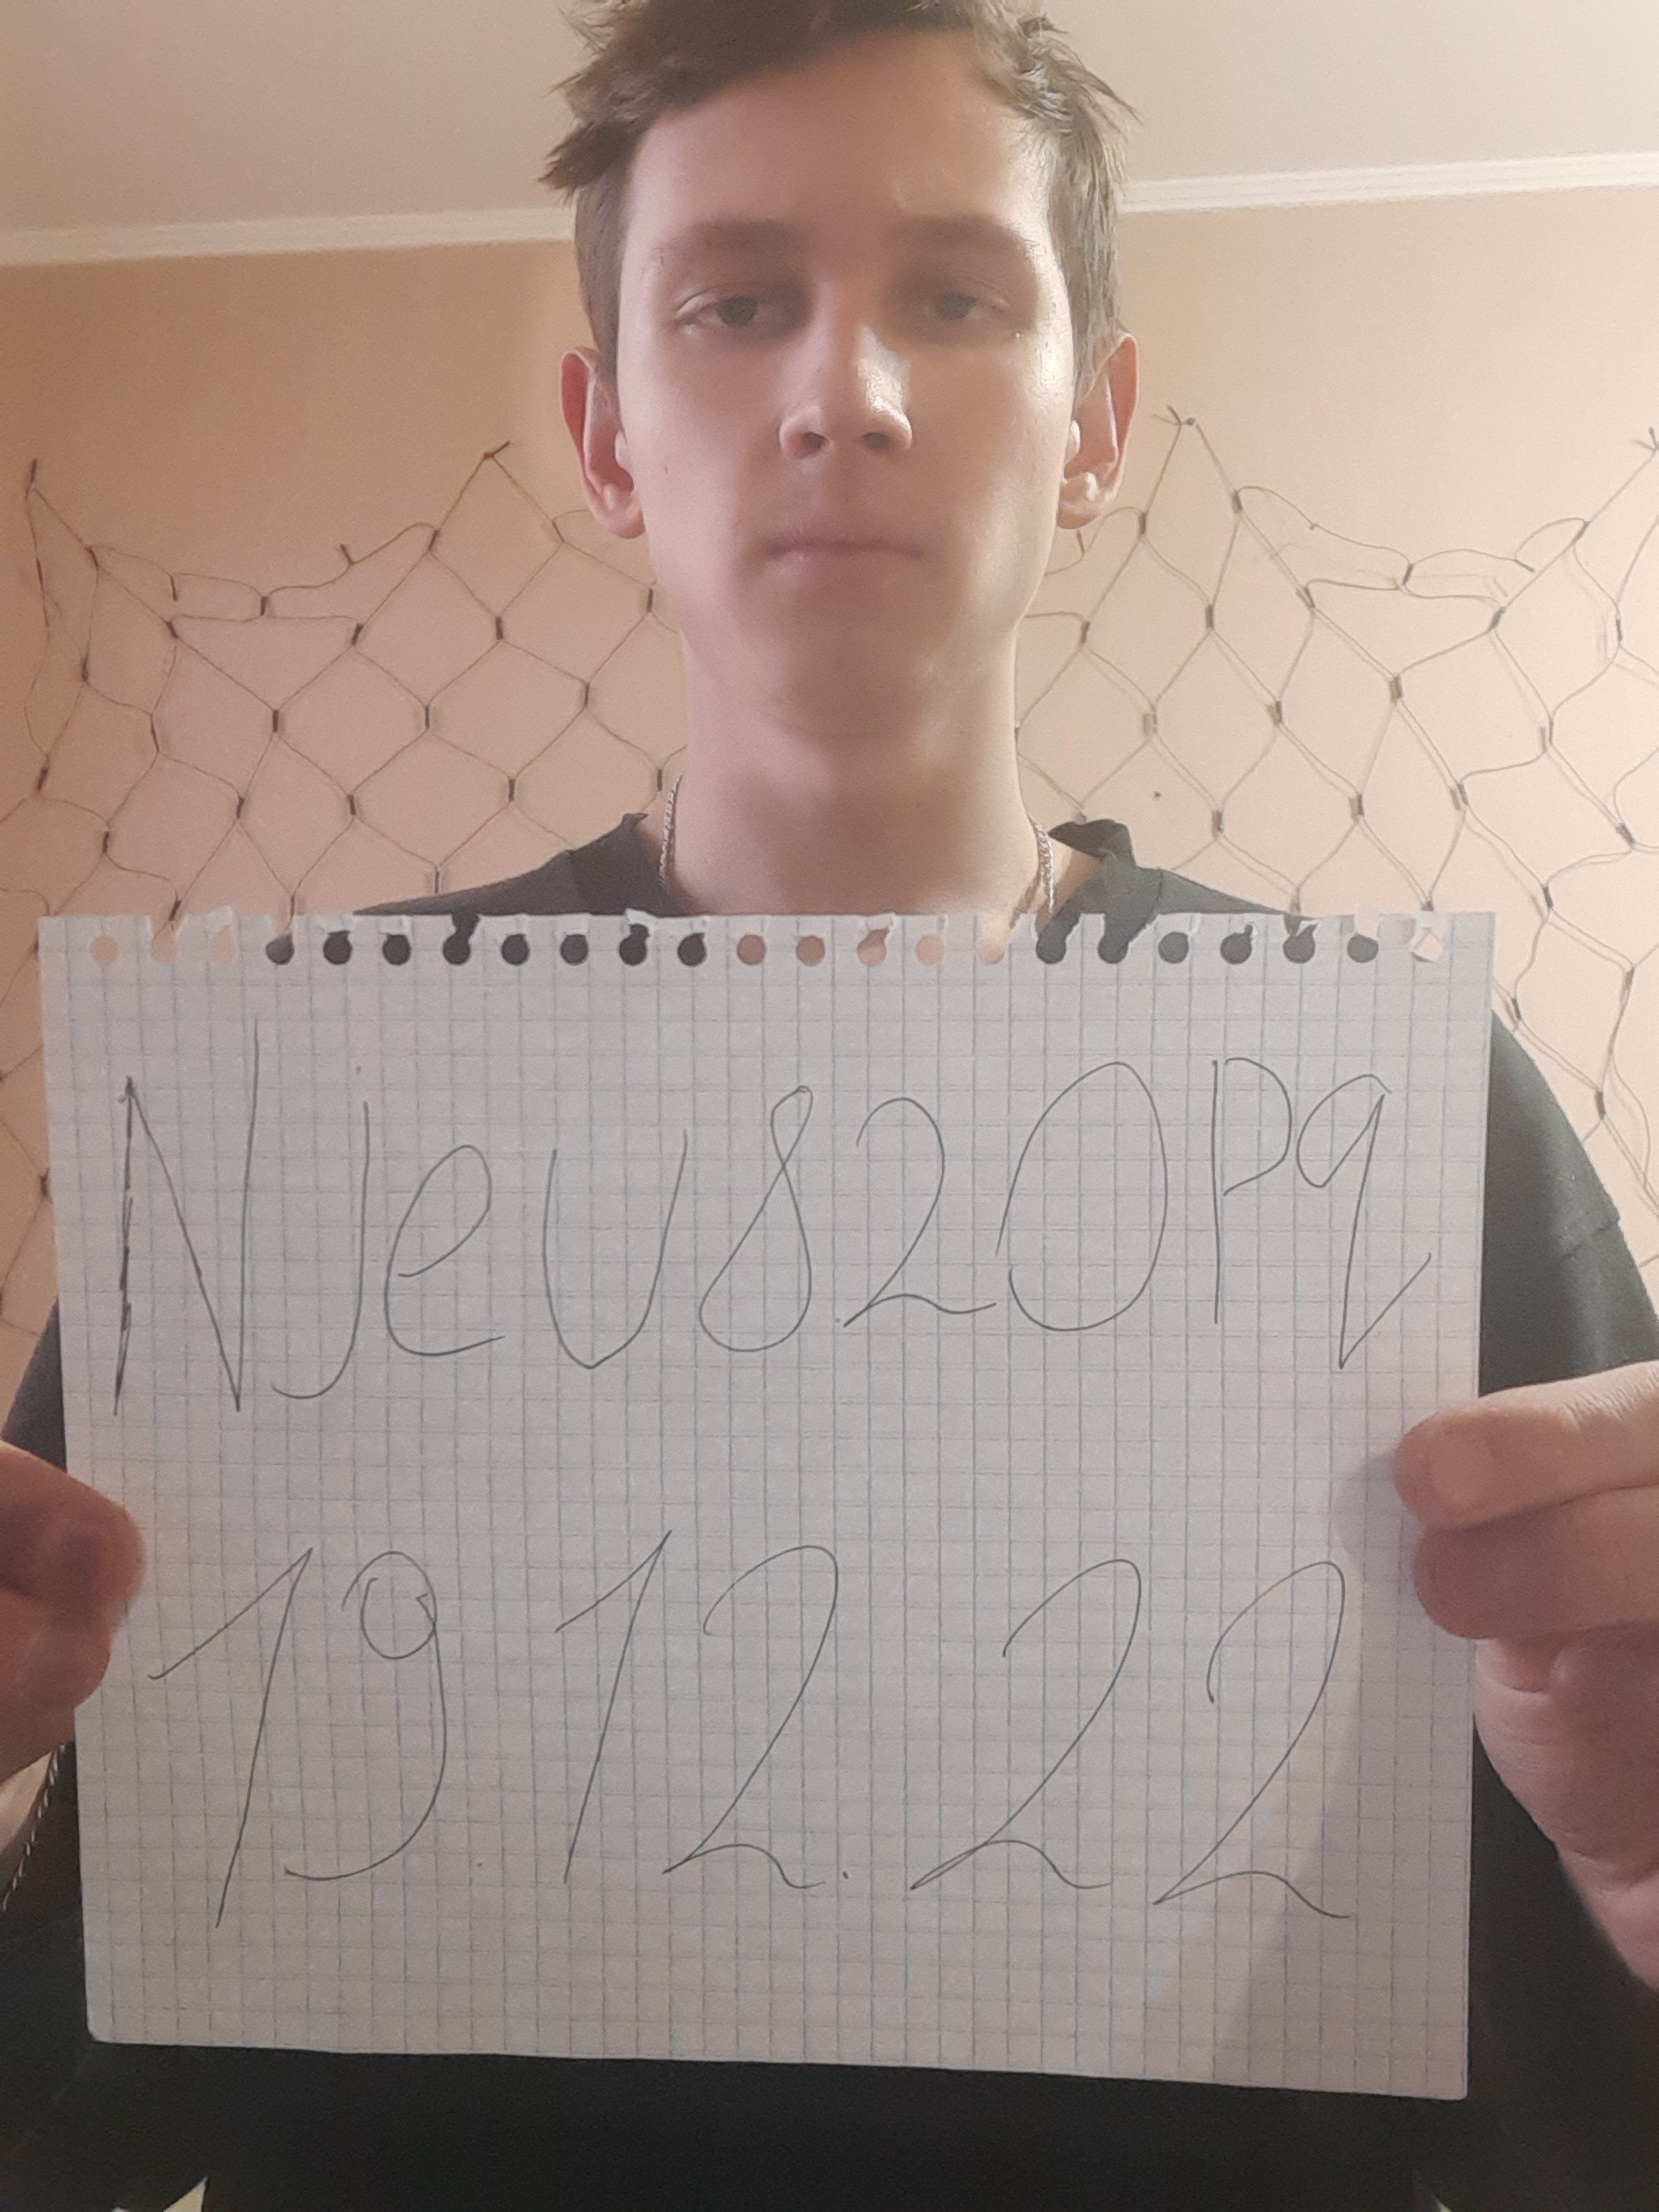 NJeU820Pq
19.12.22